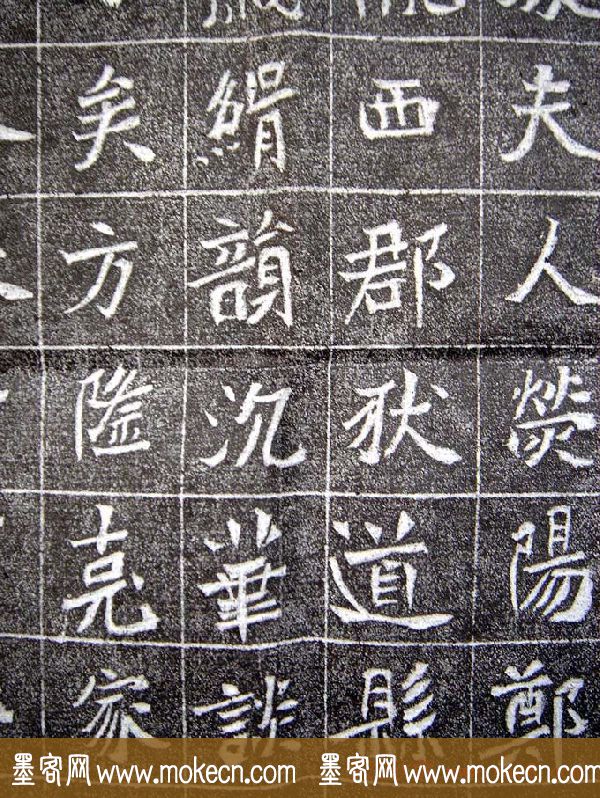 夫人熒陽鄭
西郡狄道縣
韻沉華談
矣方隆克家
墨客网 www.mokecn.com 墨客网 www.mokecn.com